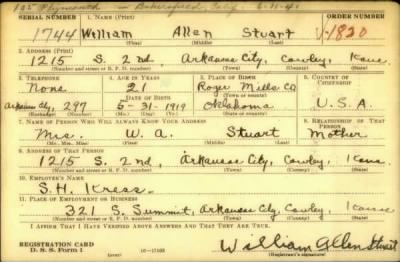 105 Plymouth - Bakersfield, Calif 6-11-41
SERIAL NUMBER 1. NAME (Print) ORDER NUMBER
1744 William Allen Stuart V-1820
(First) (Middle) (Last)
2. ADDRESS (Print)
1215 S. 2nd Arkansas City, Cowley, Kans.
(Number and street or R. F. D. number) (Town) (County) (State)
3. TELEPHONE 4. AGE IN YEARS 5. PLACE OF BIRTH 6. COUNTRY OF CITIZENSHIP
None 21 Roger Mills Co
DATE OF BIRTH (Town or county)
Arkansas City, 297 5-31-1919 Oklahoma U.S.A.
(Exchange) (Number) (Mo.) (Day) (Yr.) (State or country)
7. NAME OF PERSON WHO WILL ALWAYS KNOW YOUR ADDRESS 8. RELATIONSHIP OF THAT PERSON
Mrs. W. A. Stuart Mother
(Mr., Mrs., Miss) (First) (Middle) (Last)
9. ADDRESS OF THAT PERSON
1215 S. 2nd, Arkansas City, Cowley, Kans.
(Number and street or R. F. D. number) (Town) (County) (State)
10. EMPLOYER'S NAME
S.H. Kress.
11. PLACE OF EMPLOYMENT OR BUSINESS
321 S. Summit, Arkansas City, Cowley, Kans
(Number and street or R. F. D. number) (Town) (County) (State)
I AFFIRM THAT I HAVE VERIFIED ABOVE ANSWERS AND THAT THEY ARE TRUE.
REGISTRATION CARD
D. S. S. Form 1 William Allen Stuart
(Registrant's signature)